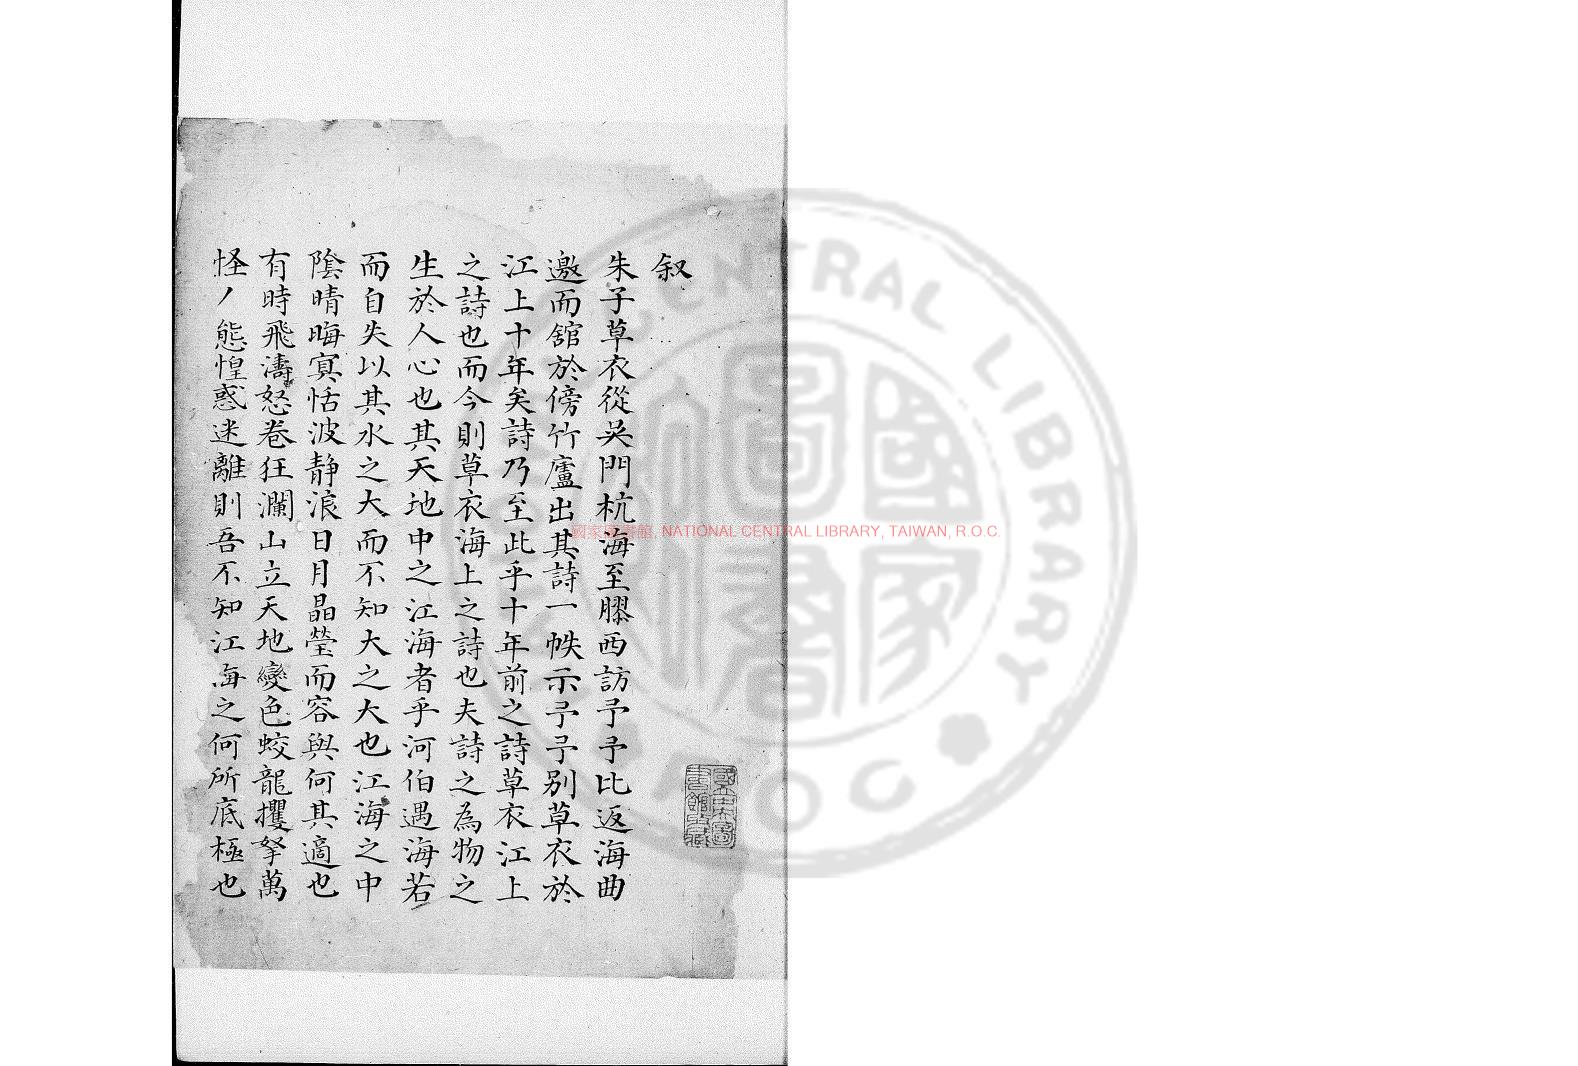 叙
朱子草衣從吳門杭海至膠西訪予予比返海曲
邀而舘於傍竹廬出其詩一帙示予予别草衣於
江上十年矣詩乃至此乎十年前之詩草衣江上
之詩也而今則草衣海上之詩也夫詩之為物之
生於人心也其天地中之江海者乎河伯遇海若
而自失以其水之大而不知大之大也江海之中
陰晴晦寘恬波静浪日月晶瑩而容與何其適也
有時飛濤怒卷狂瀾山立天地變色蛟龍攫拏萬
怪ノ態惶惑迷離則吾不知江海之何所底極也
國家圖書館, NATIONAL CENTRAL LIBRARY, TAIWAN, R.O.C.
國立中央圖書館收藏
CENTRAL LIBRARY
R.O.C.